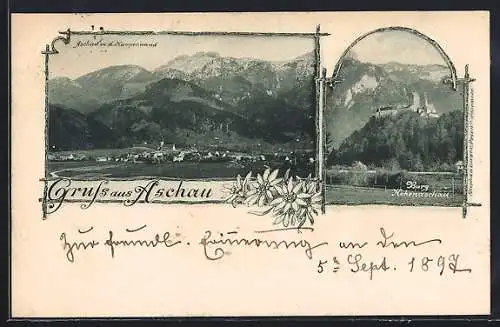 Aschau m. d. Kampenwand
Gruss aus Aschau
Burg
Hohenaschau
Zur freundl. Erinnerung an den
5ten Sept. 1897